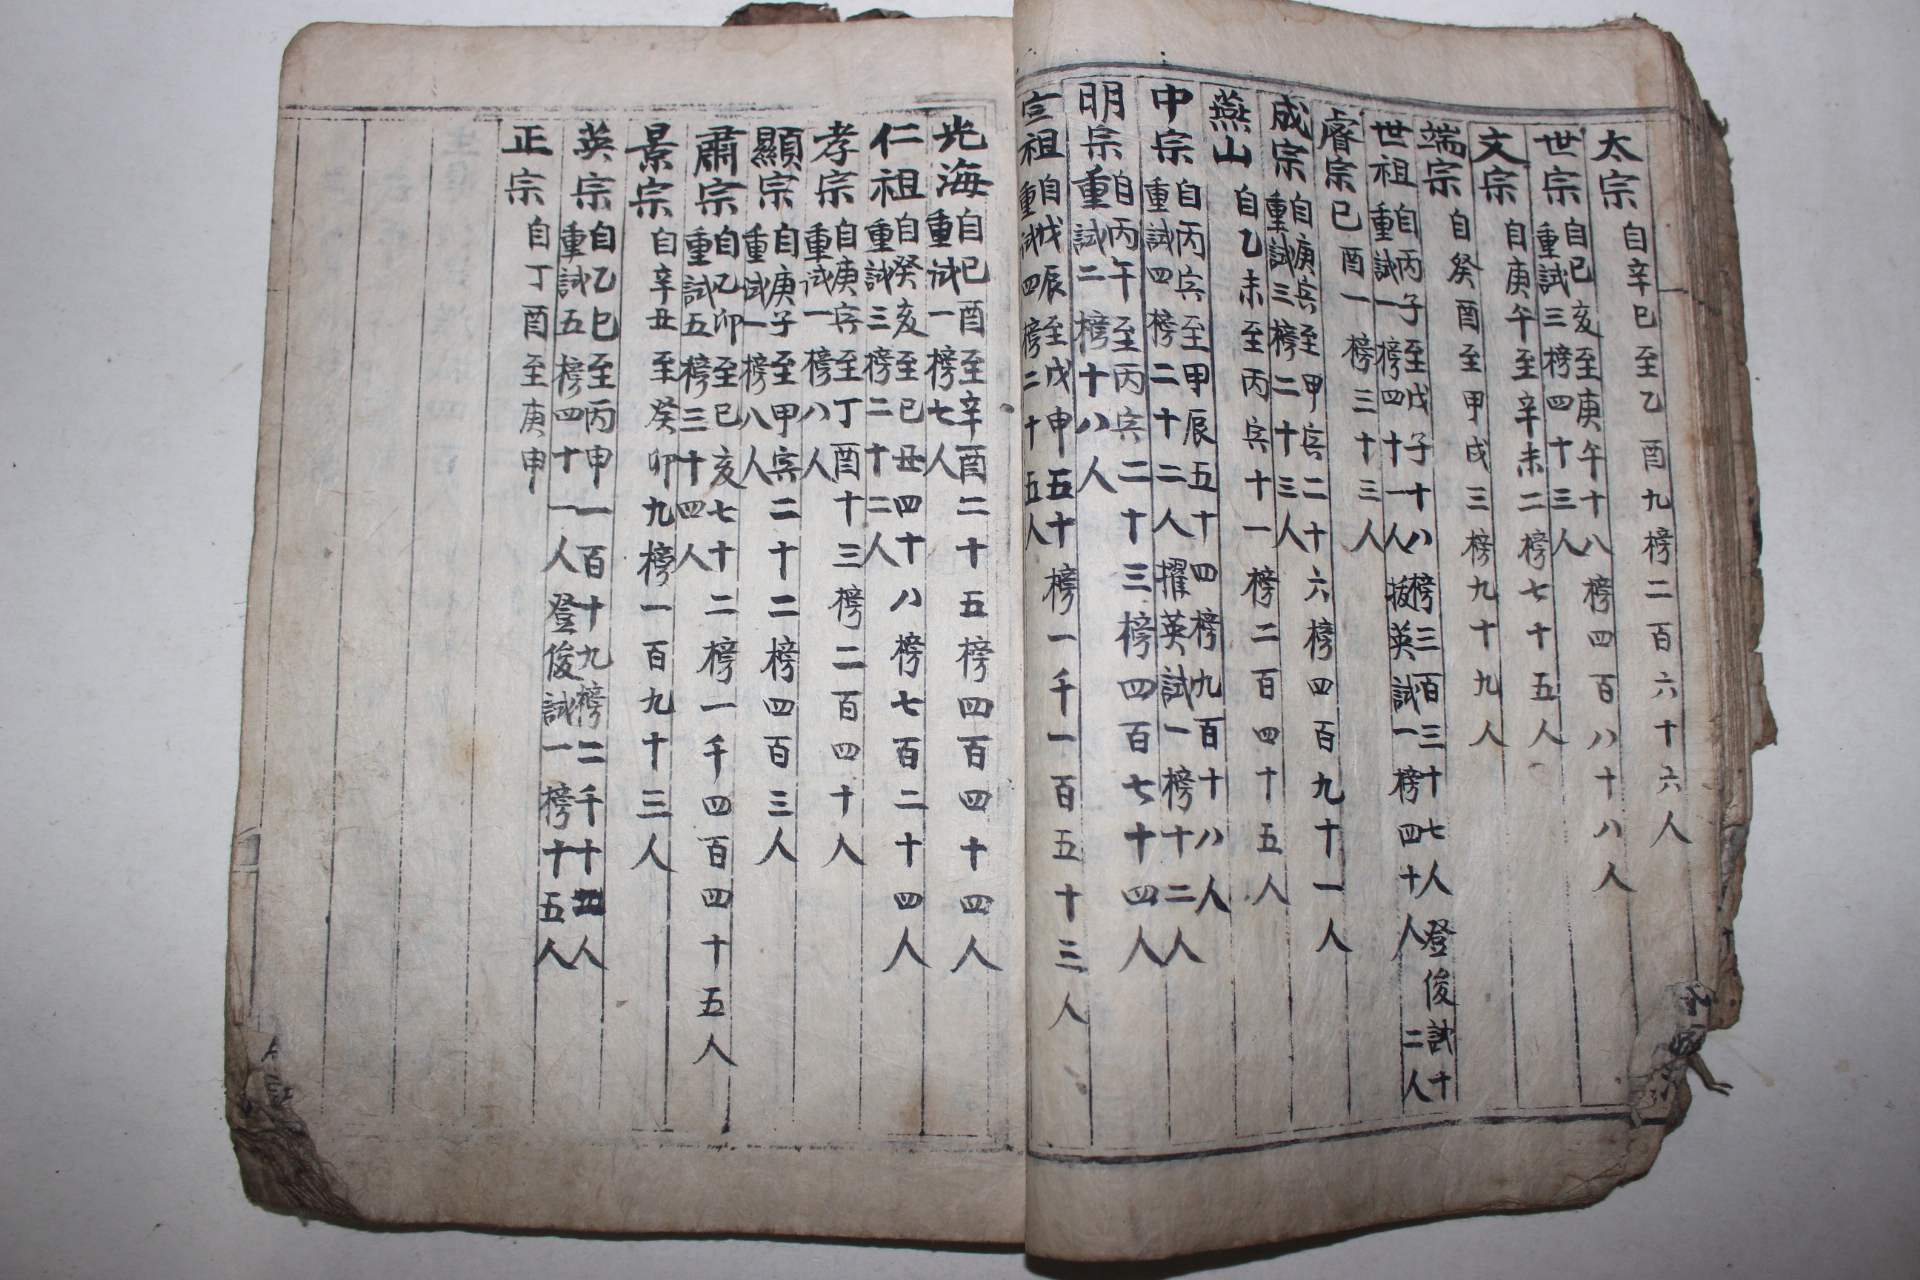 太宗 自辛巳至乙酉九榜二百六十六人
世宗 自己亥至庚午十八榜四百八十八人
重試三榜四十三人
文宗 自庚午至辛未二榜七十五人
端宗 自癸酉至甲戌三榜九十九人
世祖 自丙子至戊子十八榜三百三十七人 登俊試十
重試一榜四十一人 拔英試一榜四十人 二人
睿宗 己酉一榜三十三人
成宗 自庚寅至甲寅二十六榜四百九十一人
重試三榜二十三人
燕山 自乙未至丙寅十一榜二百四十五人
中宗 自丙寅至甲辰五十四榜九百十八人
重試四榜二十二人 擢英試一榜十二人
明宗 自丙午至丙寅二十三榜四百七十四人
重試二榜十八人
宣祖 自戊辰至戊申五十榜一千一百五十三人
重試四榜二十五人
光海 自己酉至辛酉二十五榜四百四十四人
重試一榜七人
仁祖 自癸亥至己丑四十八榜七百二十四人
重試三榜二十二人
孝宗 自庚寅至丁酉十三榜二百四十人
重試一榜八人
顯宗 自庚子至甲寅二十二榜四百三人
重試一榜八人
肅宗 自乙卯至己亥七十二榜一千四百四十五人
重試五榜三十四人
景宗 自辛丑至癸卯九榜一百九十三人
英宗 自乙巳至丙申一百十九榜二千十人
重試五榜四十一人 登俊試一榜十五人
正宗 自丁酉至庚申